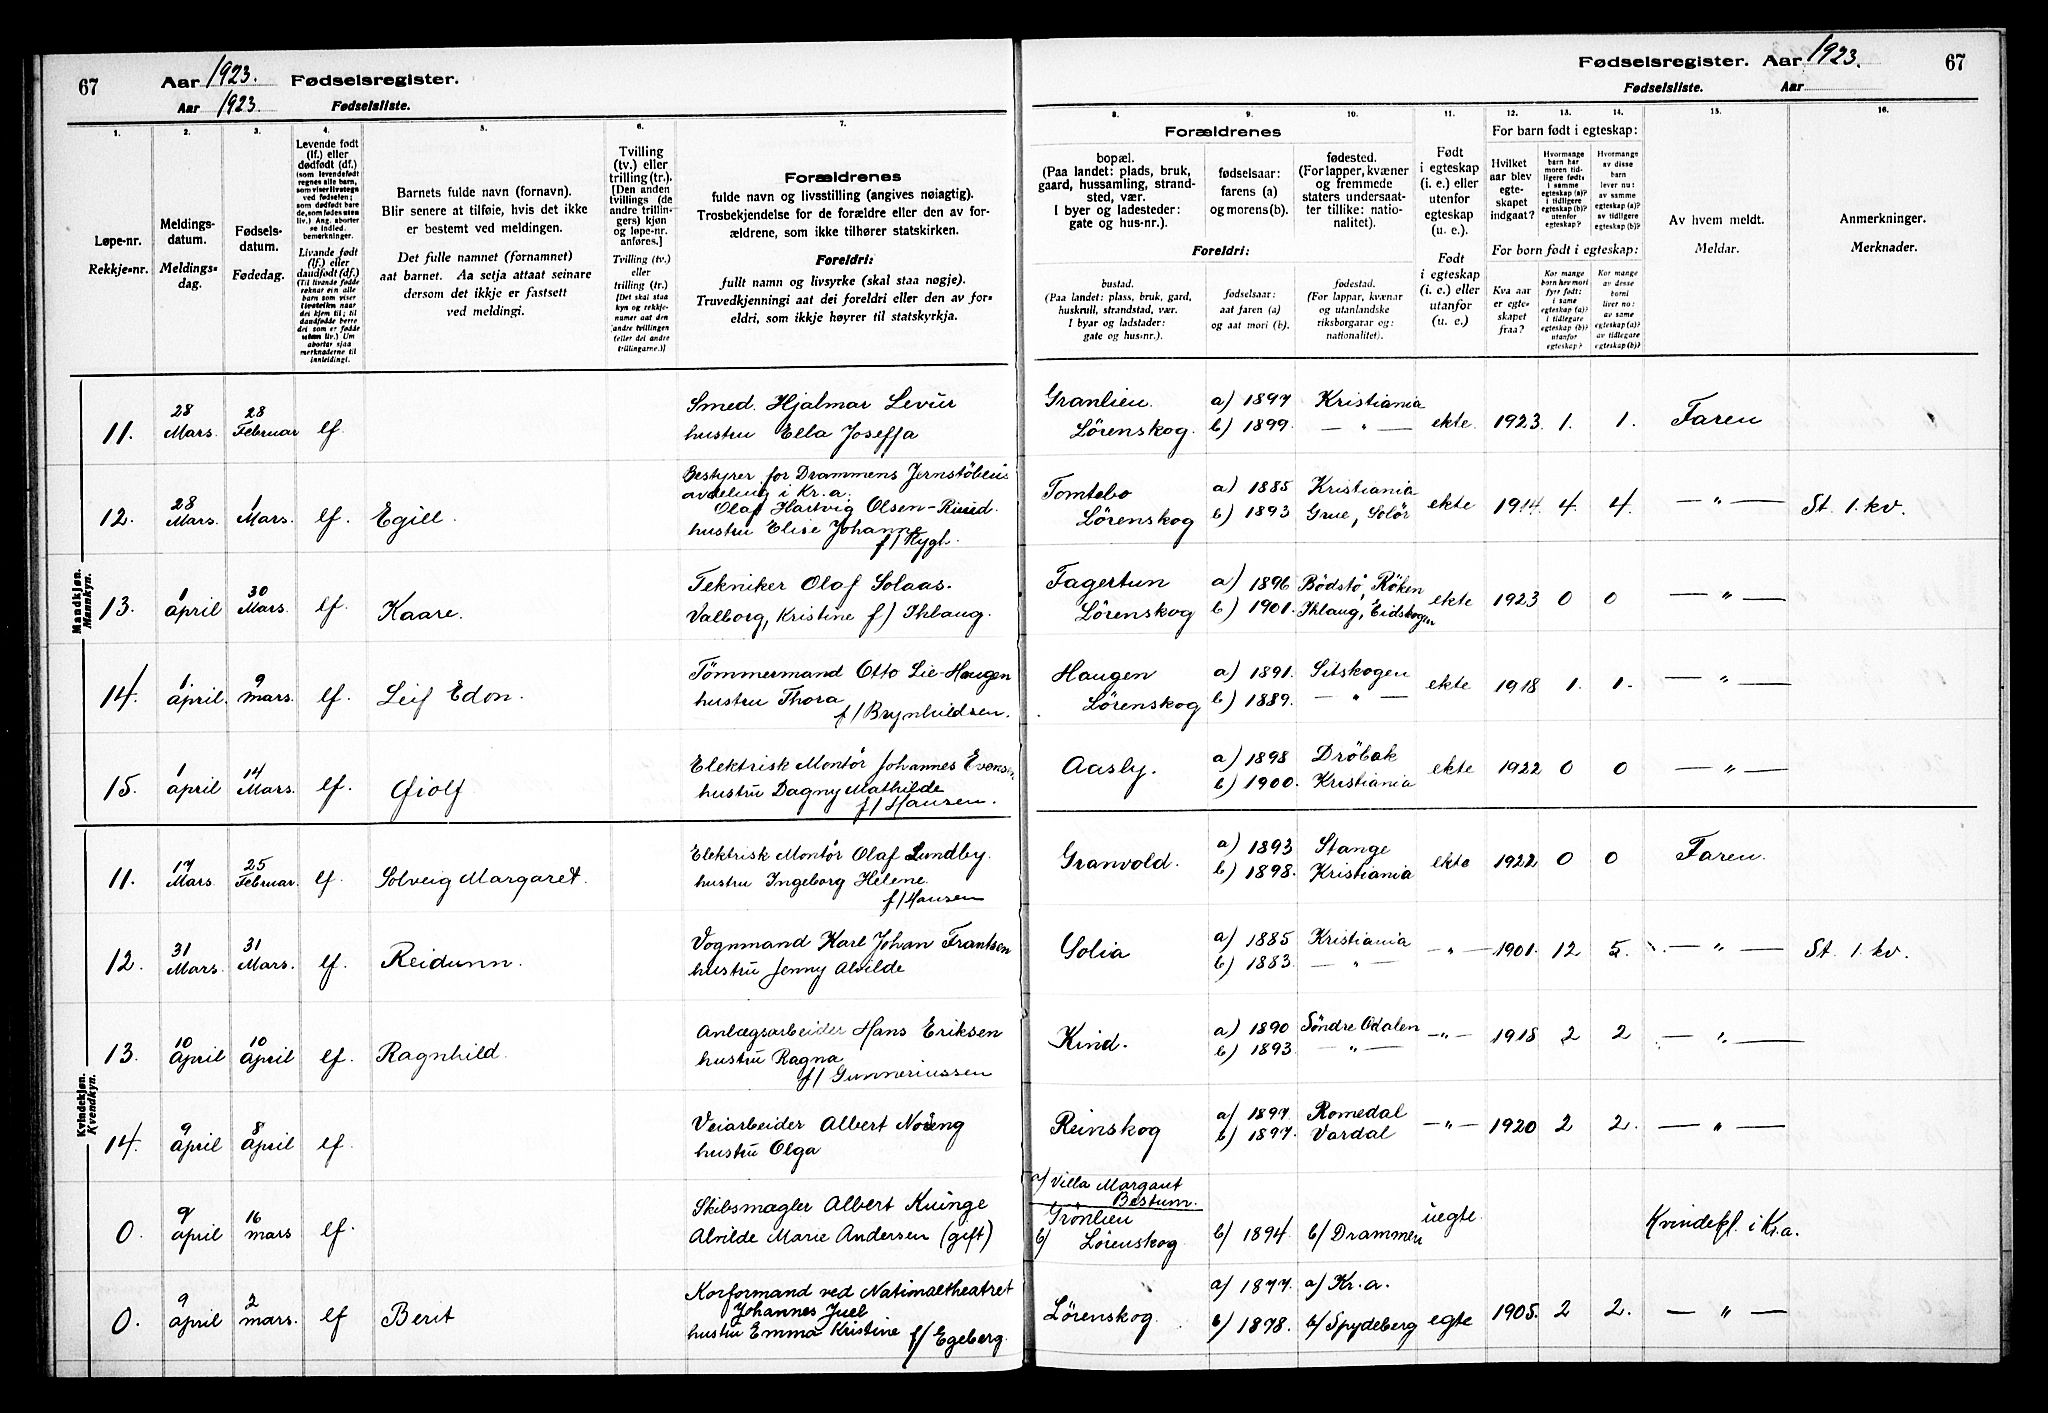 67 Aar 1923. Fødselsregister.
Aar 1923. Fødselsliste.
Fødselsregister. Aar 1923. 67
Fødselsliste. Aar
1. 2. 3. 4. 5. 6. 7.
Løpe-nr.
Rekkje-nr.
Meldings-
datum.
Meldings-
dag.
Fødsels-
datum.
Fødedag.
Levende født
(lf.) eller
dødfødt (df.)
(som levendefødt
regnes alle barn,
som viser livstegn
ved fødselen;
som dødfødt ba-
re de, som fødes uten
liv.) Ang. aborter
se indled.
bemerkninger.
Livande født
(lf.) eller
daudfødt (df.)
(Til livande fødde
reknar ein alle
barn som viser
livsteikn naar
dei kjem til; til
daudfødde berre
dei som er fødde
utan liv.) Um
abortar sjaa
merknaderne til
innleidingi.
Barnets fulde navn (fornavn).
Blir senere at tilføie, hvis det ikke
er bestemt ved meldingen.
Det fulle namnet (fornamnet)
aat barnet. Aa setja attaat seinare
dersom det ikkje er fastsett
ved meldingi.
Tvilling
(tv.) eller
trilling (tr.).
[Den anden
tvillings (de
andre trillin-
gers) kjøn
og løpe-nr.
anføres.]
Tvilling (tv.)
eller
trilling (tr.)
[Det skal staa
kyn og rekkje-
numer aat den
andre tvillingen
(eller dei andre
trillingarne.)]
Forældrenes
fulde navn og livsstilling (angives nøiagtig).
Trosbekjendelse for de forældre eller den av for-
ældrene, som ikke tilhører statskirken.
Foreldri:
fullt namn og livsyrke (skal staa nøgje).
Truvedkjenningi aat dei foreldri eller den av for-
eldri, som ikkje høyrer til statskyrkja.
8. 9. 10. 11. 12. 13. 14. 15. 16.
Forældrenes
bopæl.
(Paa landet: plads, bruk,
gaard, hussamling, strand-
sted, vær.
I byer og ladesteder:
gate og hus-nr.).
fødselsaar:
farens (a)
og morens (b).
fødested.
(For lapper, kvæner
og fremmede
staters undersaat-
ter tillike: natio-
nalitet).
Foreldri:
bustad.
(Paa landet: plass, bruk, gard,
huskrull, strandstad, vær.
I byar og ladstader:
gate og hus-nr.).
fødselsaar:
aat faren (a)
og aat mori (b).
fødestad.
(For lappar, kvænar
og utanlandske
riksborgarar og:
nationalitet).
Født
i egteskap
(i. e.) eller
utenfor
egteskap
(u. e.).
Født
i egteskap
(i. e.) eller
utanfor
(u. e.)
For barn født i egteskap:
Hvilket
aar blev
egte-
skapet
indgaat?
Hvormange
barn har
moren tid-
ligere født:
i samme
egteskap (a)?
i tidligere
egteskap (b)?
utenfor
egteskap?
Hvormange
av disse
barn
lever nu:
av samme
egteskap (a)?
av tidligere
egteskap (b)?
For born født i egteskap:
Kva aar
er egte-
skapet
fraa?
Kor mange
born hev mori
fyrr født:
i same
egteskap (a)?
i tidlegare
egteskap (b)?
utanfor
egteskap?
Kor mange
av desse
borni
liver no:
av same
egteskap (a)?
av tidlegare
egteskap (b)?
Av hvem meldt.
Meldar.
Anmerkninger.
Merknader.
Mandkjøn.
Mannkyn.
11. 28 Mars. 28 Februar lf
Smed. Hjalmar Levur
hustru Ella Joseffa
Granlien. Lörenskog. a) 1897 b) 1899. Kristiania — " — ekte 1923. 1. 1. Faren
12. 28 Mars. 1 Mars. lf. Egill.
Bestyrer for Drammens Jernstöberis
avdeling i Kr.a.
Olaf Hartvig Olsen-Ruud.
hustru Elise Johanne
f/ Rygh.
Tomtebo Lörenskog a) 1885 b) 1893 Kristiania Grue, Solör ekte 1914. 4. 4. — " — St. 1. kv.
13. 1 april 30 Mars. lf. Kaare.
Tekniker Olaf Solaas.
Valborg, Kristine f) Ihlaug.
Fagertun Lörenskog a) 1896 b) 1901. Bödstö, Röken Ihlaug, Eidskogen ekte 1923 0 0 — " —
14. 1. april. 9 mars. lf. Leif Edon.
Tömmermand Otto Lie-Haugen
hustru Thora
f/ Brynhildsen.
Haugen Lörenskog a) 1891. b) 1889. Sitskogen — " — ekte 1918 1. 1. — " —
15. 1 april 14 Mars. lf.
Elektrisk Montör Johannes Evensen
hustru Dagny Mathilde
f/ Hansen.
Aasly. a) 1898 b) 1900. Dröbak Kristiania ekte 1922 0 0 — " —
Kvindekjøn.
Kvendkyn.
11. 17 Mars 25 Februar. lf. Solveig Margaret.
Elektrisk Montör Olaf Lundby.
hustru Ingeborg Helene.
f/ Hansen
Granvold. a) 1893 b) 1898. Stange Kristiania ekte 1922 0 0 Faren.
12. 31 Mars. 31 Mars. lf. Reidunn.
Vognmand Karl Johan Frantsen
hustru Jenny Alvilde
Solia a) 1885 b) 1883. Kristiania — " — — " — 1901. 12 5. — " — St. 1. kv.
13. 10 april 10 april lf. Ragnhild.
Anlægsarbeider Hans Eriksen
hustru Ragna
f/ Gunneriussen
Kind. a) 1890 b) 1893. Söndre Odalen — " — — " — 1918 2 2 — " —
14. 9 april 8 april lf.
Veiarbeider Albert Noreng
hustru Olga
Reinskog a) 1897. b) 1897. Romedal Vardal — " — 1920 2 2. — " —
0. 9 april 16 mars lf.
Skibsmægler Albert Kuinge
Alvilde Marie Andersen (gift)
a/ Villa Margaut
Bestum.
b) Grönlien Lörenskog. b) 1894. b/ Drammen uegte. Kvindekl. i Kr.a.
0. 9 april 2 mars. lf Berit
Korformand ved Nationaltheatret
Johannes Juel
hustru Emma Kristine f/ Egeberg.
Lörenskog. a) 1877. b) 1878. a/ Kr.a. b/ Spydeberg egte 1905. 2 2. — " —